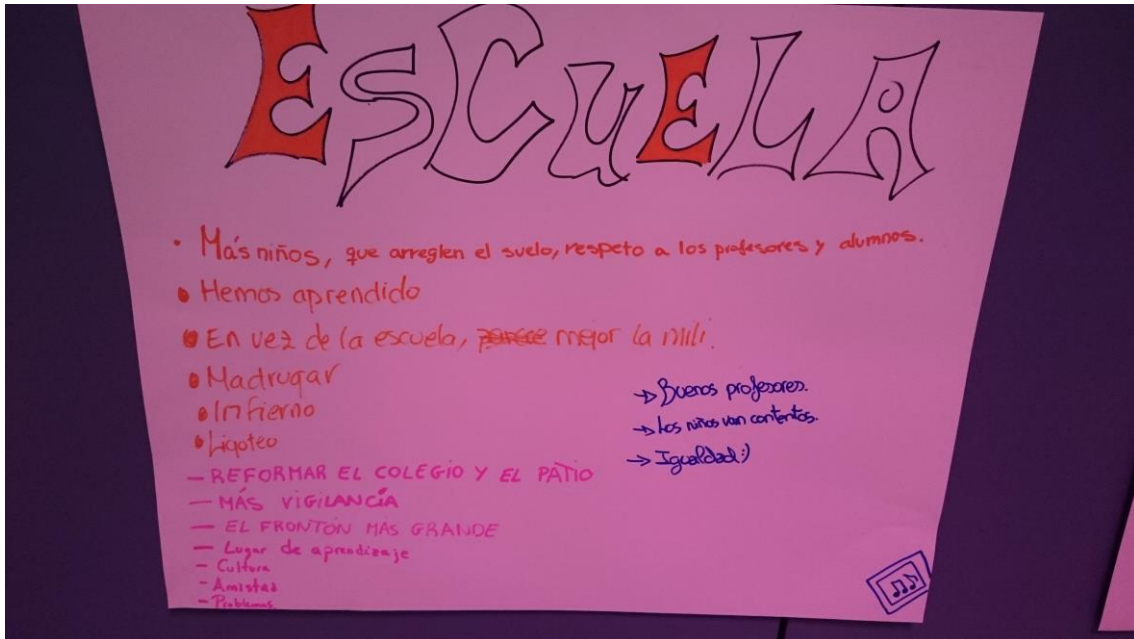 ESCUELA
• Más niños, que arreglen el suelo, respeto a los profesores y alumnos.
• Hemos aprendido
• En vez de la escuela, parece mejor la mili.
• Madrugar
• Infierno
• Ligoteo
— REFORMAR EL COLEGIO Y EL PATIO
— MÁS VIGILANCÍA
— EL FRONTÓN MAS GRANDE
— Lugar de aprendizaje
— Cultura
- Amistad
- Problemas.
→ Buenos profesores.
→ Los niños van contentos.
→ Igualdad :)